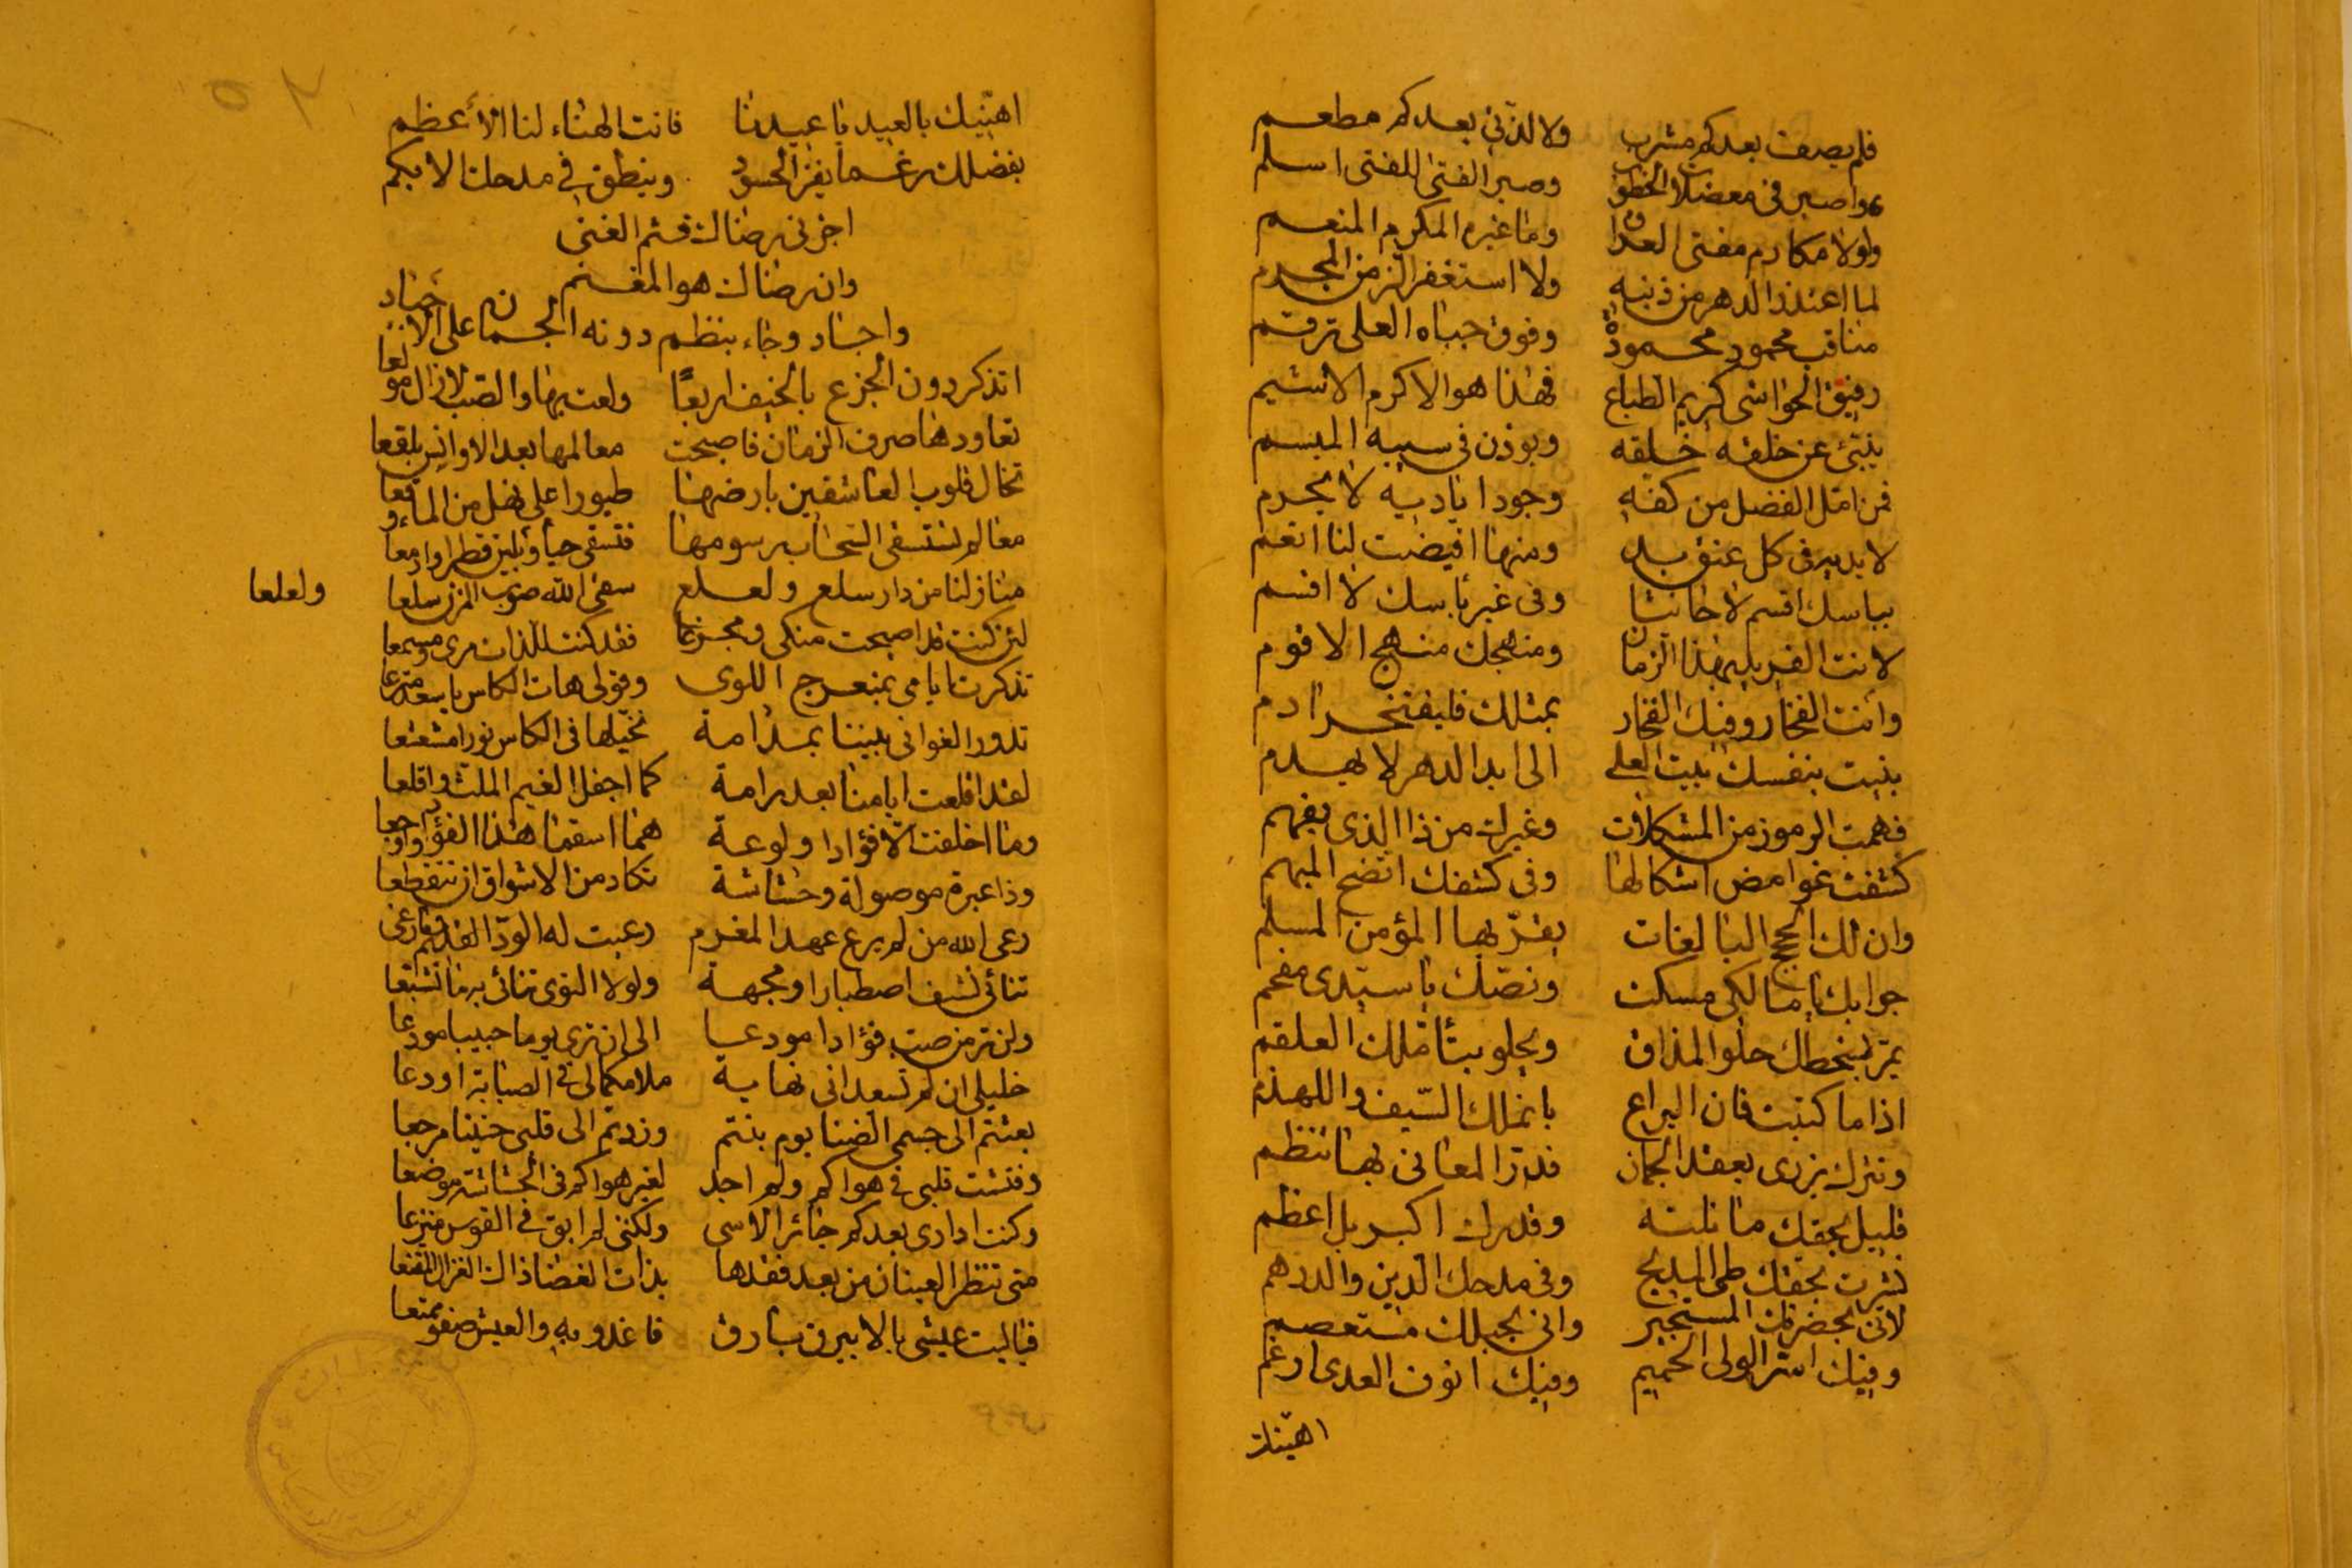 فلم يصف بعدكم مشرب ولا لذّني بعدكم مطعم
واصبر في معضلات الخطوب وصبر الفتى للفتى اسلم
ولولا مكارم مفتى العراق وما غيره المكرم المنعم
لما اعتذر الدهر من ذنبه ولا استغفر الزمن المجرم
مناقب محمود محمودة وفوق جباه العلى ترقم
رقيق الحواشي كريم الطباع فهذا هو الاكرم الاشيم
ينبئ عن خلقه خلقه ويوذن في سيبه المبسم
فمن امّل الفضل من كفّه وجود اياديه لا يحرم
لايديه في كل عنق يد ومنها افيضت لنا انعم
بباسك اقسم لا حانثا وفي غير باسك لا اقسم
لانت الفريد بهذا الزمان ومنهجك منهج الاقوم
وأنت الفخار وفيك الفخار بمثلك فليفتخر ادم
بنيت بنفسك بيت العلى الى ابد الدهر لا يهدم
فهمت الرموز من المشكلات وغيرك من ذا الذي يفهم
كشفت غوامض اشكالها وفي كشفك اتضح المبهم
وان لك الحجج البالغات يقرّ بها المؤمن المسلم
جوابك يا مالكي مسكت ونصّك يا سيّدي مفحم
يمرّ بسخطك حلو المذاق ويحلو بتأملك العلقم
اذا ما كتبت فان اليراع بانملك السّيف واللهذم
ونثرك يزرى بعقد الجمان فدرّ المعاني بها تنظم
قليل بحقك ما نلته وقدرك اكبر بل اعظم
نشرت بحقك طى المديح وفي مدحك الدين والدرهم
لاني بحضرتك المستجير واني بحبلك مستعصم
وفيك اسرّ الولى الحميم وفيك انوف العدى ارغم
اهنيك
اهنّيك بالعيد يا عيدنا فانت الهناء لنا الأعظم
بفضلك رغما يقرّ الحسود وينطق في مدحك الابكم
اجرني رضاك فثم الغنى
وان رضاك هو المغنم
واجاد وجاء بنظم دونه الجمان على الاجياد
اتذكر دون الجزع بالخيف اربعًا ولعت بها والصب لازال مولعا
تعاورها صرف الزمان فاصبحت معالمها بعد الاوانس بلقعا
تخال قلوب العاشقين بارضها طيورا على نهل من الماء وقعا
معالم تستسقى السّحاب رسومها فتسقى حيا وبلين قطرا وادمعا
منازلنا من دار سلع ولعلع سقى الله صوب المزن سلعا ولعلعا
لئن كنت قد اصبحت منكى ومجزعا فقد كنت للذات مرى ومسمعا
تذكرت ايامي بمنعرج اللوى وقولى هات الكاس يا سعد مترعا
تدور الغواني بيننا بمدامة تخيّلها في الكاس نورا مشعشعا
لقد اقلعت ايامنا بعد رامة كما اجفل الغيم الملث واقلعا
وما اخلفت الا فؤادا ولوعة هما اسقما هذا الفؤاد واوجعا
وذا عبرة موصولة وحشاشة تكاد من الاشواق ان تتقطعا
رعى الله من لم يرع عهد المغرم رعيت له الودّ القديم فما رعى
تنائى نشيف اصطبارا ومهجة ولولا النوى تنائى به ما تشيّعا
ولن ترمن صبّ فؤادا مودعا الى ان ترى يوما حبيبا مودعا
خليلي ان لم تسعداني فما به ملامكما لي في الصبابة اودعا
بعثتم الى جسمي الضنا يوم بنتم وزدتم الى قلبي حنينا مرجعا
وفتشت قلبي في هواكم ولم اجد لغير هواكم في الحشاشة موضعا
وكنت اداري بعدكم جائر الاسى ولكنني لم ابق في القوس منزعا
متى تنظر العينان من بعد فقدها بذات الغضا ذاك الغزال المقنعا
فياليت عيشي بالابيرق بارق فاغدو به والعيش صفو ممتعا